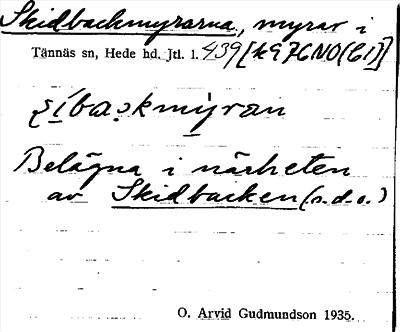 Skidbackmyrarna, myrar i
Tännäs sn, Hede hd. Jtl. 1. 439 [k976NO(61)]
Belägna i närheten
av Skidbacken (s.d.o.)
O. Arvid Gudmundson 1935.